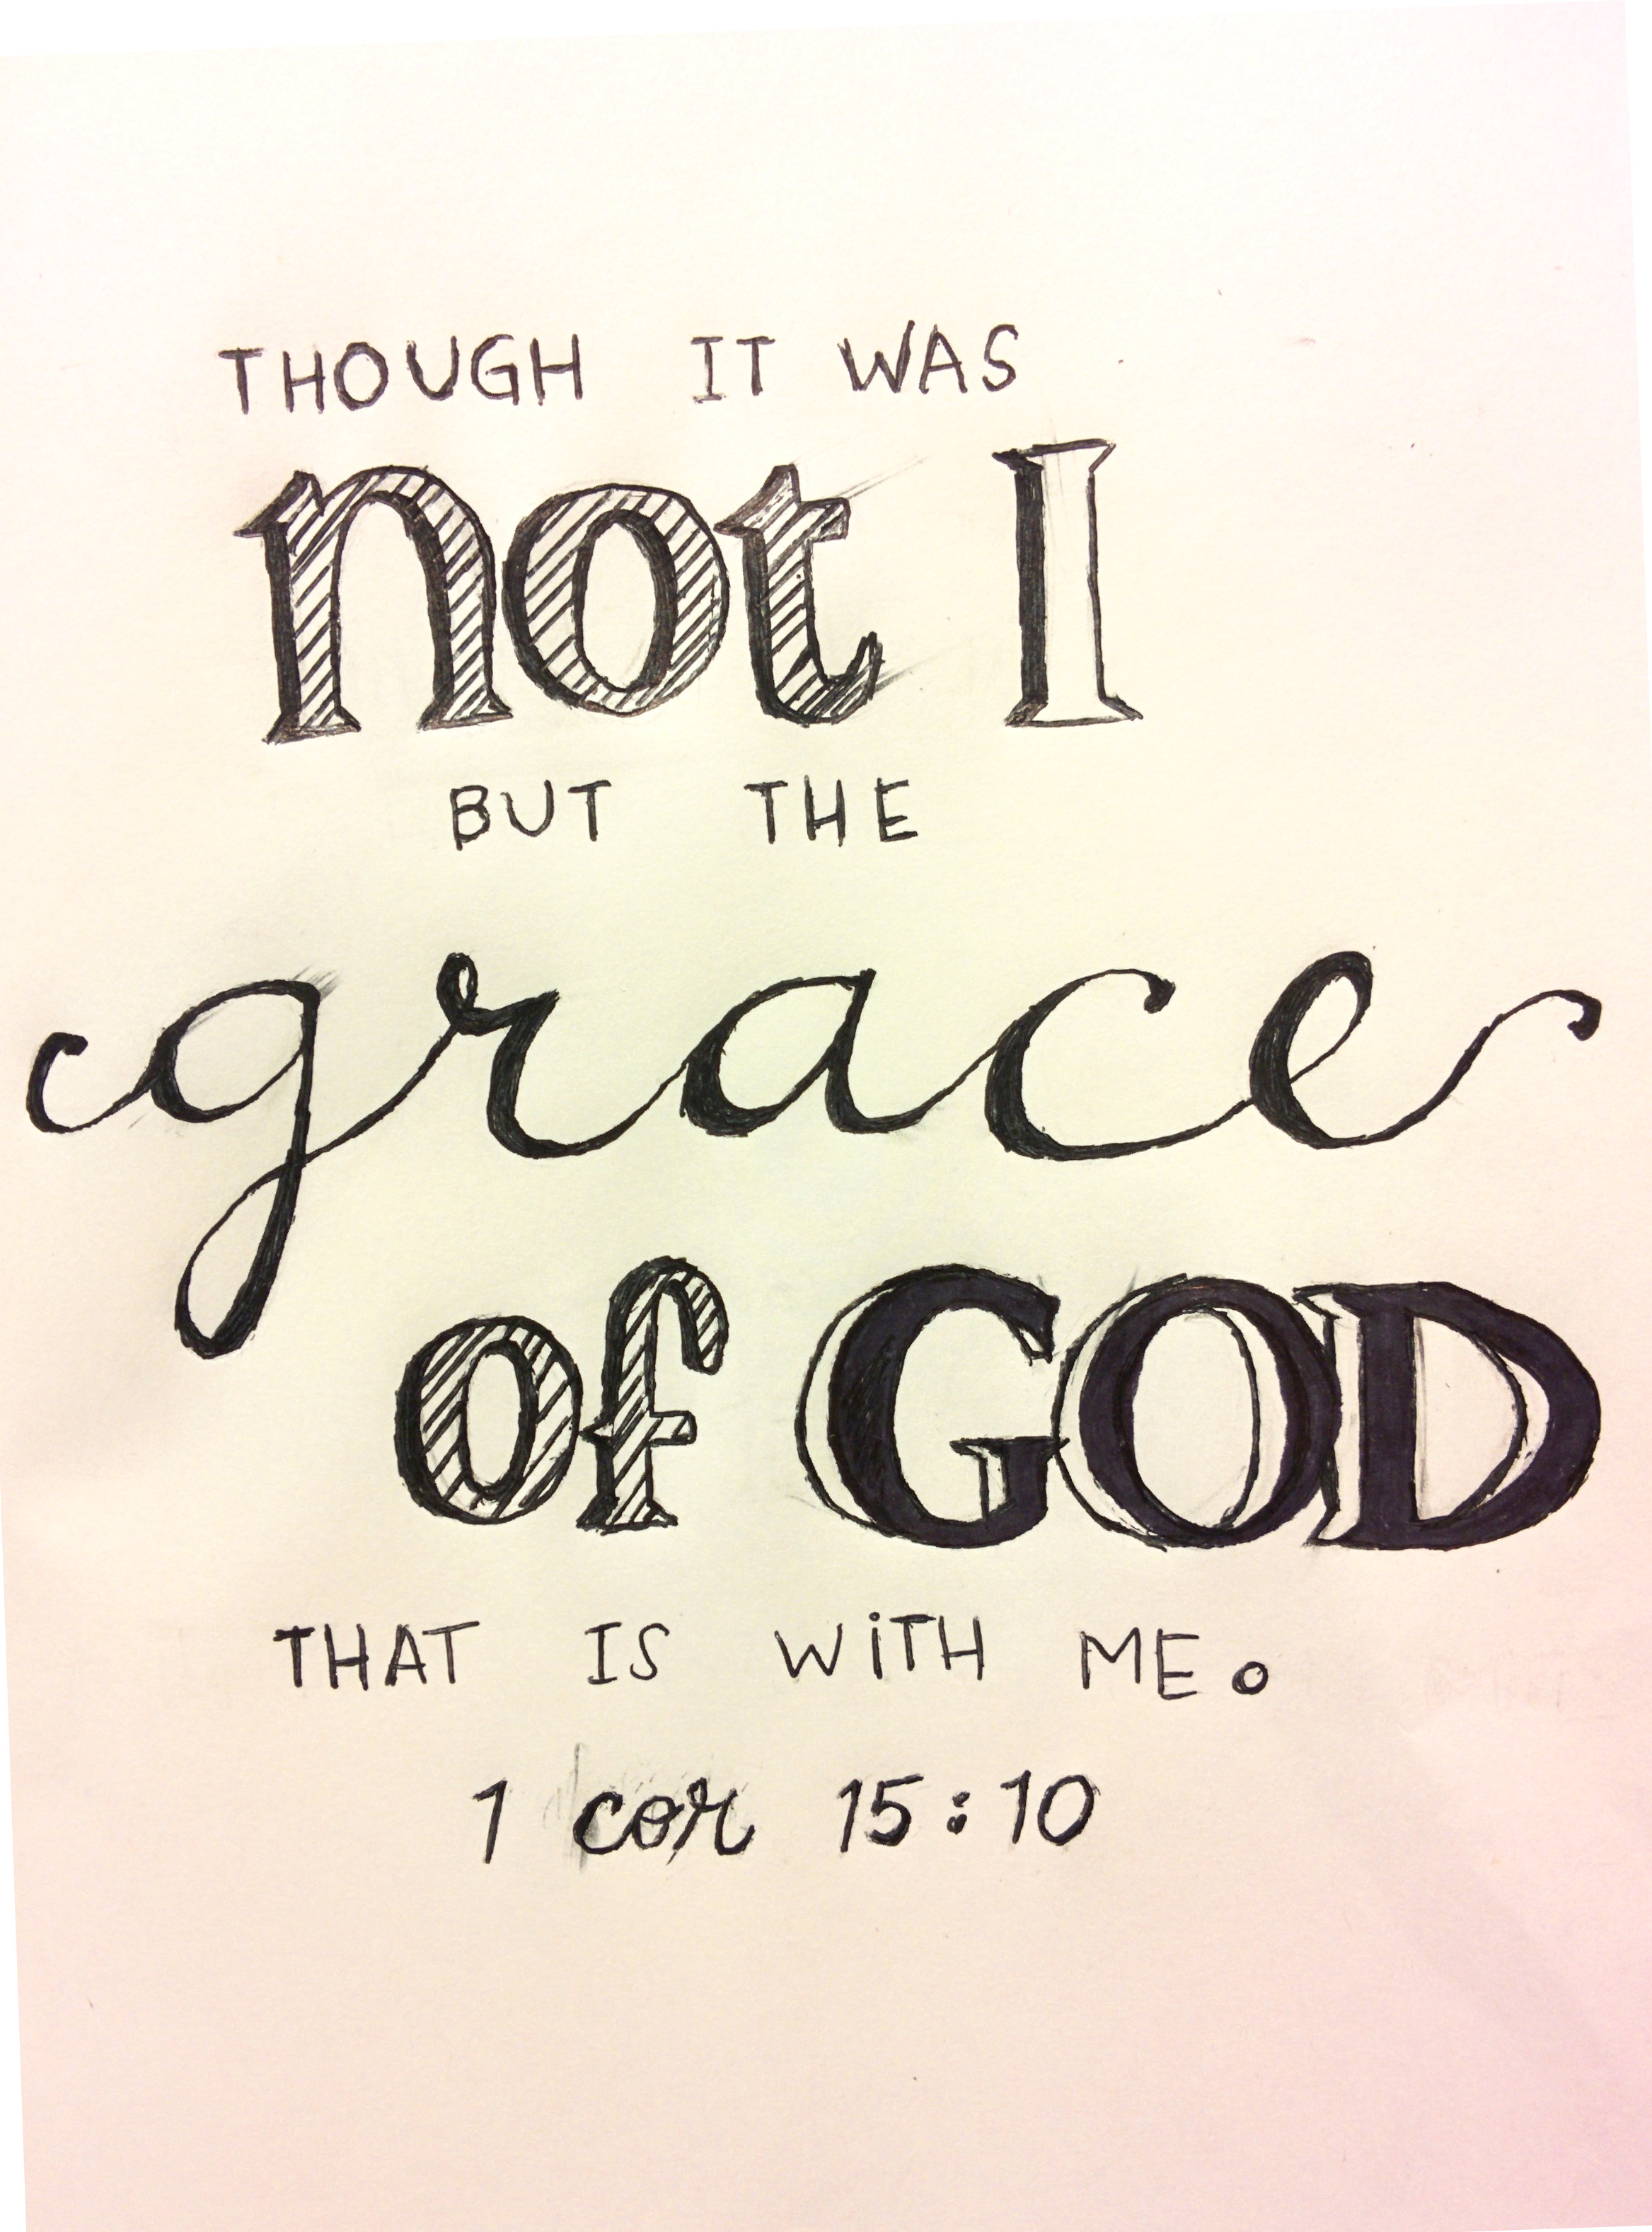 THOUGH IT WAS
not I
BUT THE
grace
of GOD
THAT IS WiTH ME.
1 cor 15:10